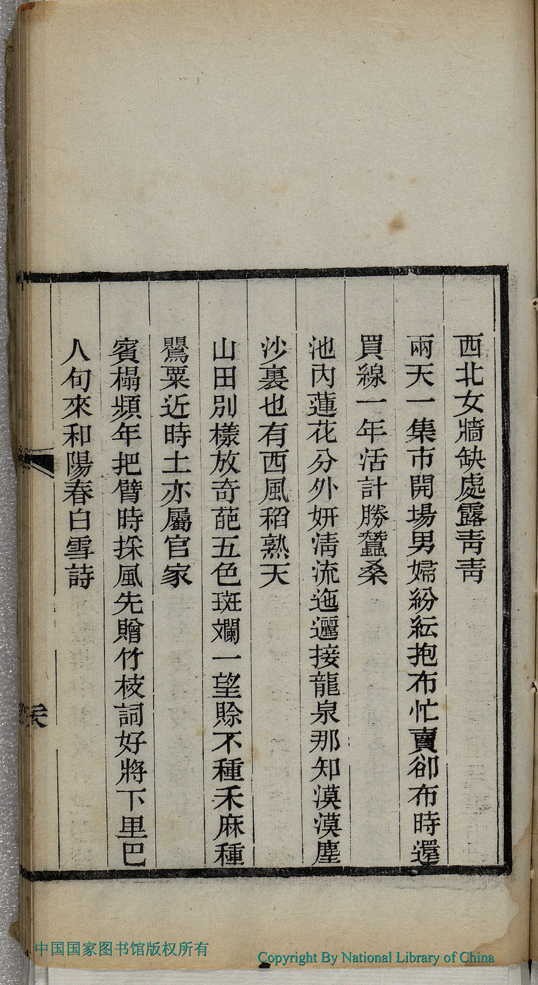 西北女牆缺處露靑靑
兩天一集市開場男婦紛紜抱布忙賣卻布時還
買線一年活計勝蠶桑
池內蓮花分外妍淸流迤邐接龍泉那知漠漠塵
沙裏也有西風稻熟天
山田別樣放奇葩五色斑斕一望賒不種禾麻種
鸎粟近時土亦屬官家
賓榻頻年把臂時採風先贈竹枝詞好將下里巴
人句來和陽春白雪詩
中国国家图书馆版权所有
Copyright By National Library of China